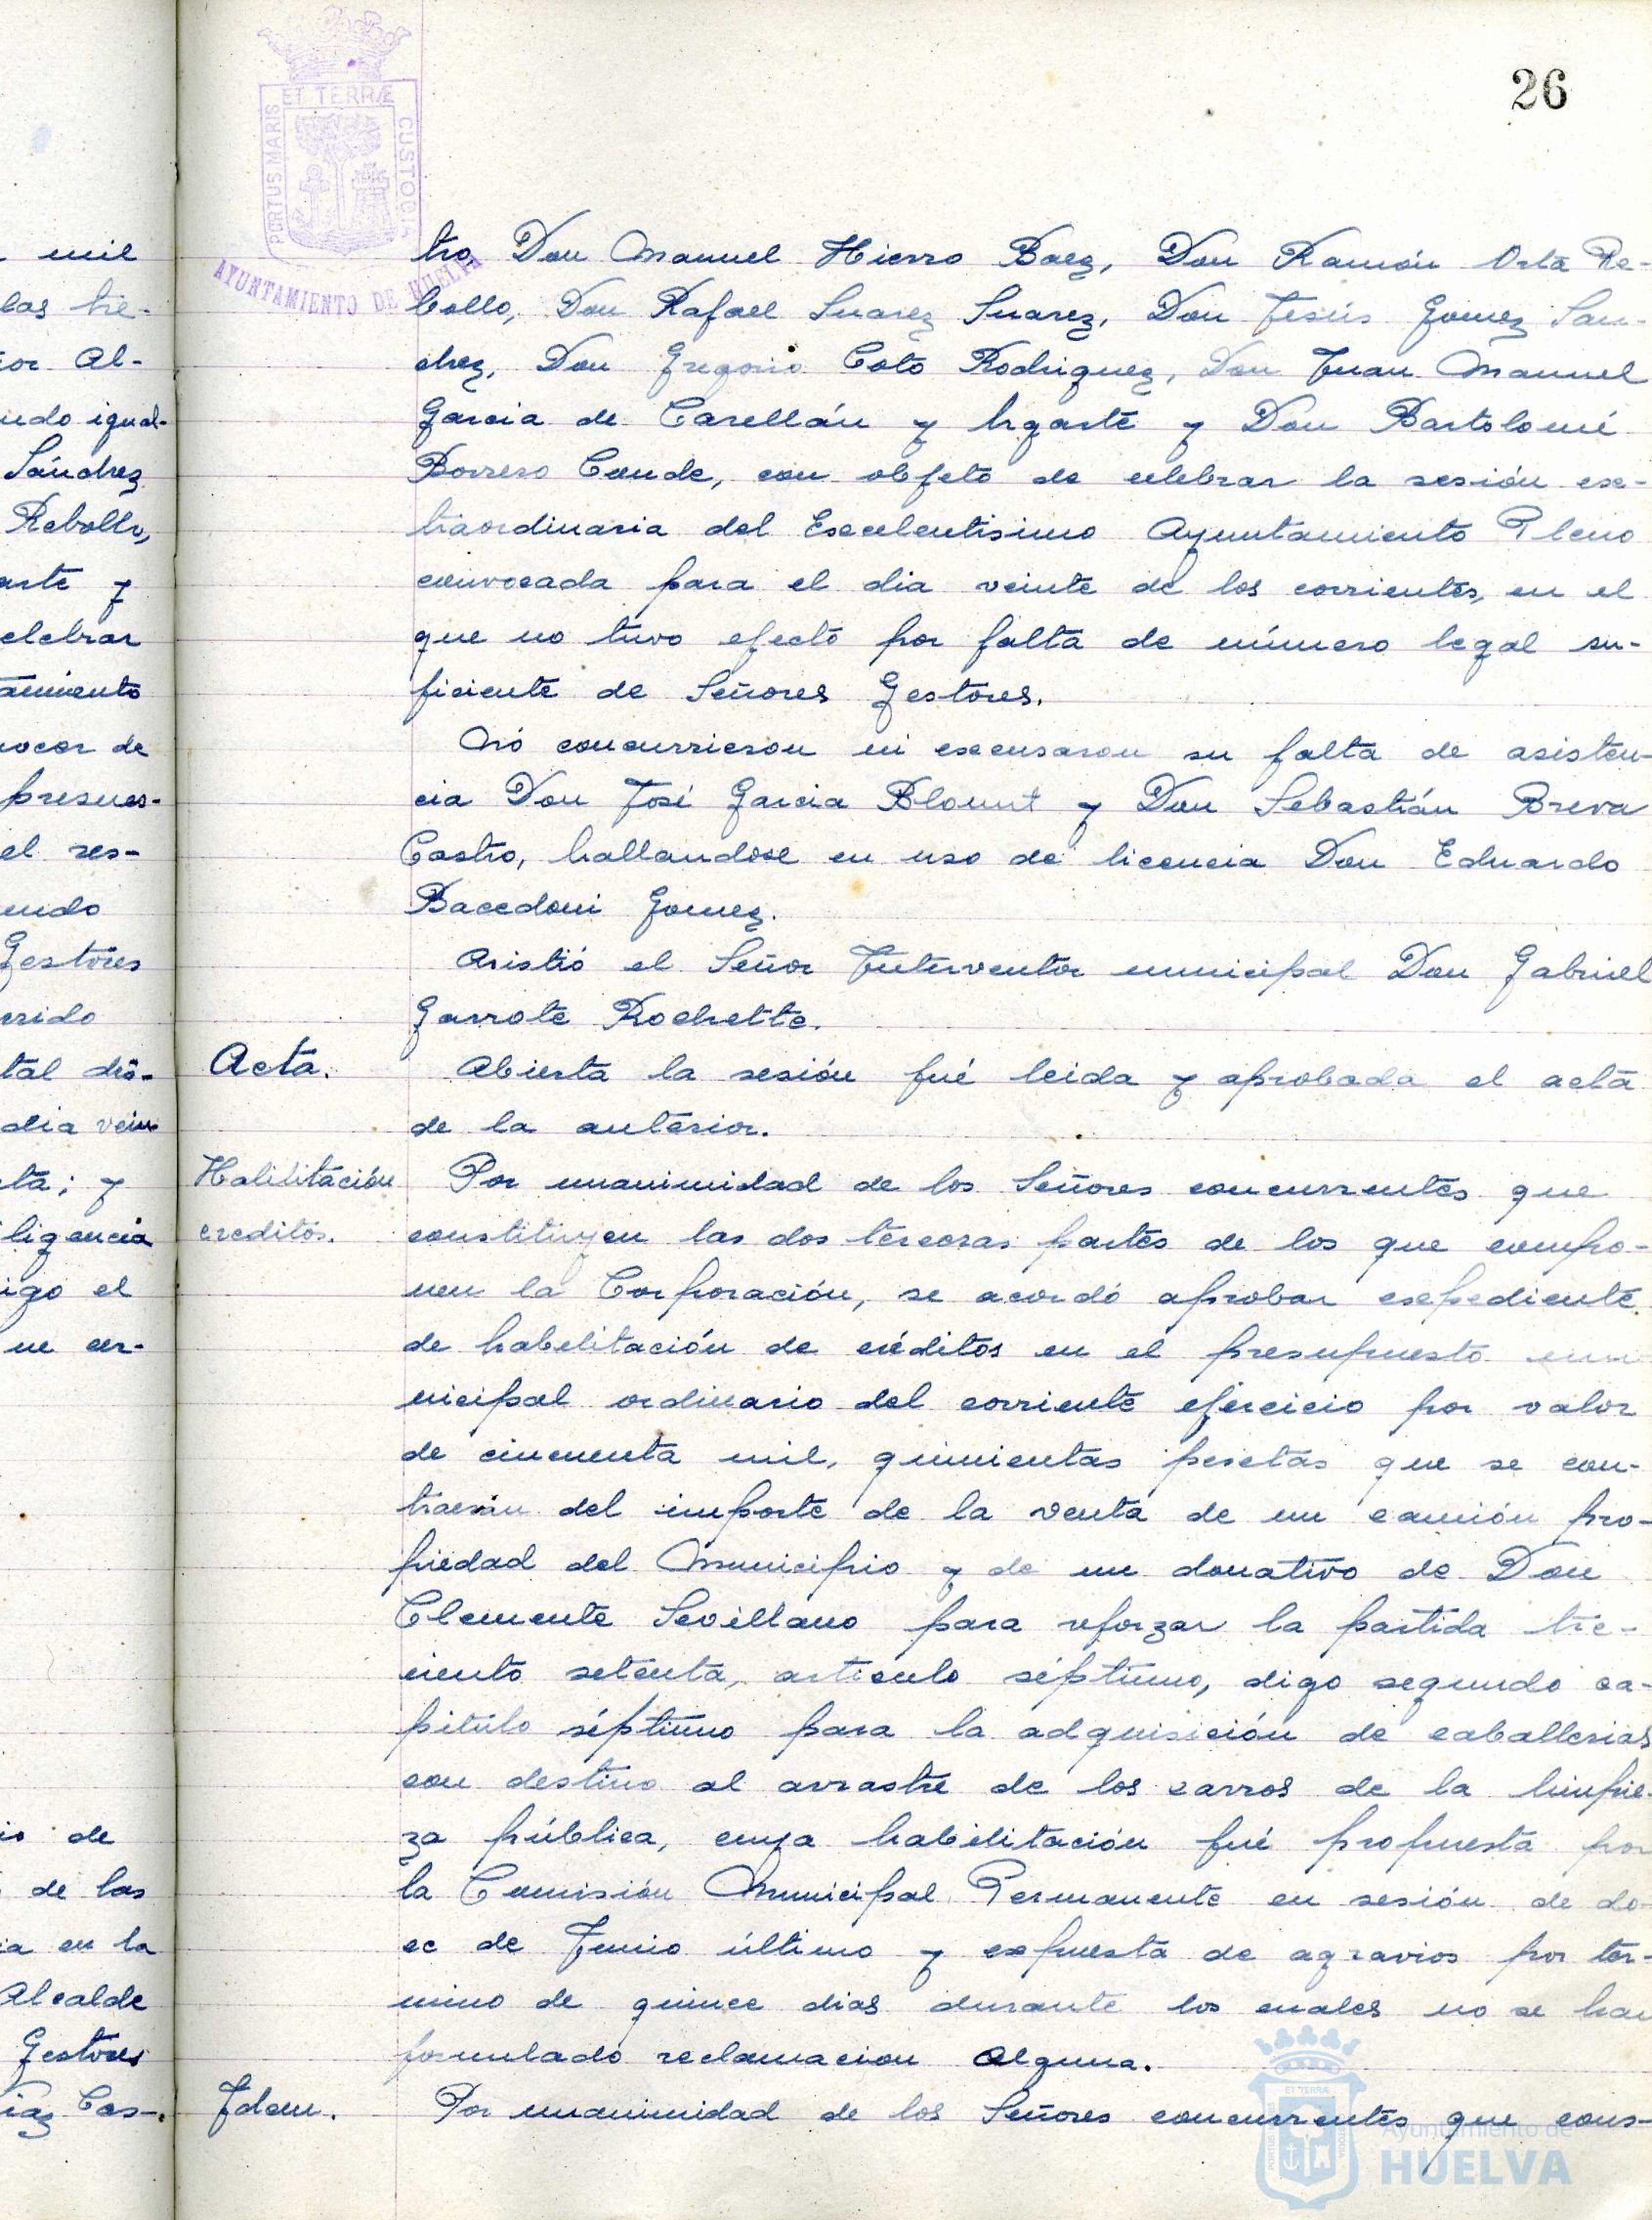 26
PORTUS MARIS ET TERRÆ CUSTODIA
AYUNTAMIENTO DE HUELVA
mil
las tre-
or Al-
ndo igual-
Sánchez
Rebollo,
arte y
elebrar
tamiento
nocer de
presues-
el res-
endo
Gestores
erido
tal dró-
dia vein
ta; y
ligencia
igo el
ue cer-
io de
de las
ia en la
Alcalde
Gestores
iaz Cas-
tro, Don Manuel Hierro Baez, Don Ramón Orta Re-
bollo, Don Rafael Suarez Suarez, Don Jesús Gomez San-
chez, Don Gregorio Coto Rodriguez, Don Juan Manuel
Garcia de Carellán y Ugarte y Don Bartolomé
Borrero Conde, con objeto de celebrar la sesión ex-
traordinaria del Excelentisimo Ayuntamiento Pleno
convocada para el dia veinte de los corrientes, en el
que no tuvo efecto por falta de número legal su-
ficiente de Señores Gestores.
No concurrieron ni excusaron su falta de asisten-
cia Don José Garcia Blount y Don Sebastián Breva
Castro, hallandose en uso de licencia Don Eduardo
Bacedoni Gomez.
Asistió el Señor Interventor municipal Don Gabriel
Garrote Rochette.
Acta. Abierta la sesión fué leida y aprobada el acta
de la anterior.
Habilitación Por unanimidad de los Señores concurrentes que
creditos. constituyen las dos terceras partes de los que compo-
nen la Corporación, se acordó aprobar expediente
de habilitación de créditos en el presupuesto mu
nicipal ordinario del corriente ejercicio por valor
de cincuenta mil, quinientas pesetas que se con-
traerán del importe de la venta de un camión pro-
piedad del Municipio y de un donativo de Don
Clemente Sevillano para reforzar la partida tre-
ciento setenta, articulo séptimo, digo segundo ca-
pitulo séptimo para la adquisición de caballerias
con destino al arrastre de los carros de la limpie-
za pública, cuya habilitación fué propuesta por
la Comisión Municipal Permanente en sesión de do-
ce de Junio último y expuesta de agravios por tér-
mino de quince dias durante los cuales no se han
formulado reclamacion alguna.
Idem. Por unanimidad de los Señores concurrentes que cons-
Ayuntamiento de
HUELVA